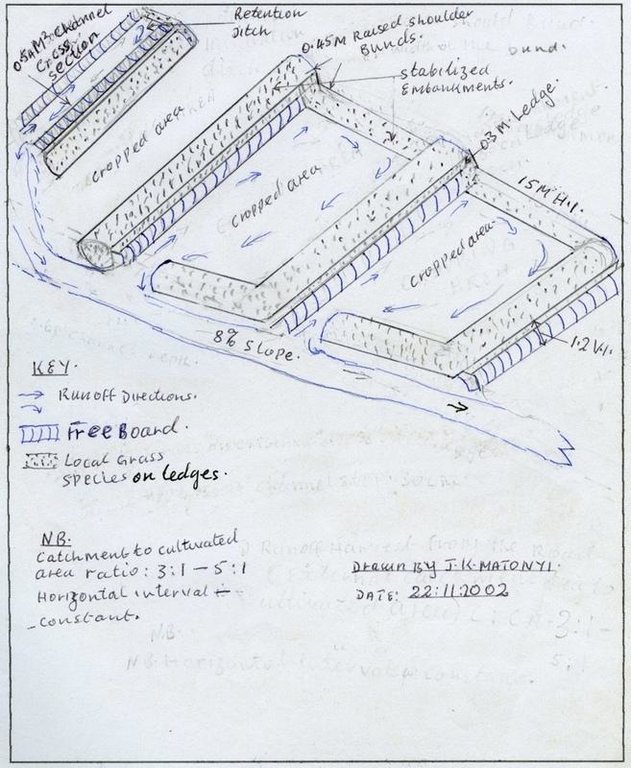 0.5M3 channel
cross
section
Retention
Ditch
0.45M Raised shoulder
Bunds.
stabilized
Embankments.
03M. Ledge.
15M H.I.
cropped area
cropped area
cropped area
8% Slope.
1.2 V.I.
KEY.
Runoff Directions.
FreeBoard.
Local Grass
species on ledges.
NB.
Catchment to cultivated
area ratio: 3:1 - 5:1
Horizontal interval
constant.
Drawn BY J.K. MATONYI.
DATE: 22.11.2002